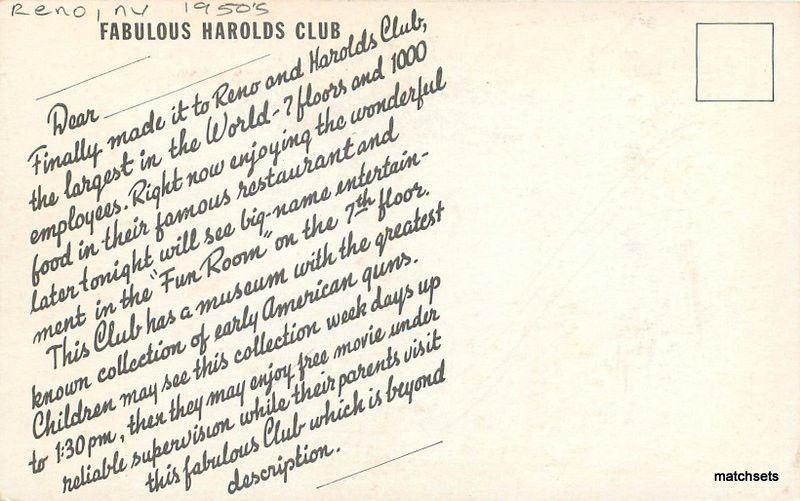 Reno, NV 1950's
FABULOUS HAROLDS CLUB
Dear
Finally made it to Reno and Harolds Club,
the largest in the World - 7 floors and 1000
employees. Right now enjoying the wonderful
food in their famous restaurant and
later tonight will see big-name entertain-
ment in the "Fun Room" on the 7th floor.
This Club has a museum with the greatest
known collection of early American guns.
Children may see this collection week days up
to 1:30 pm, then they may enjoy free movie under
reliable supervision while their parents visit
this fabulous Club which is beyond
description.
matchsets